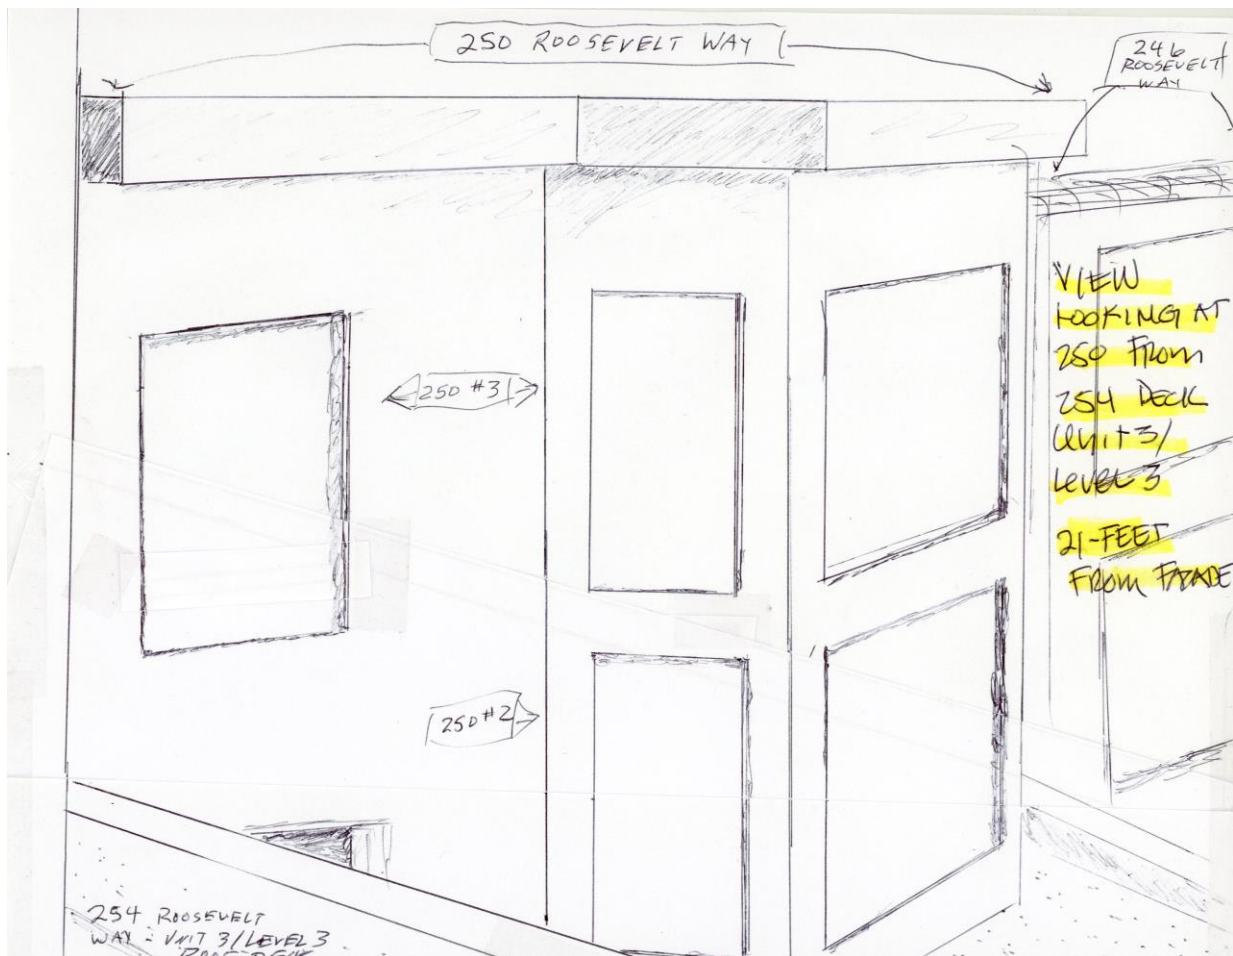 250 ROOSEVELT WAY
246
ROOSEVELT
WAY
VIEW
LOOKING AT
250 FROM
254 DECK
UNIT 3/
LEVEL 3
21-FEET
FROM FACADE
250 #3
250 #2
254 ROOSEVELT
WAY - UNIT 3/LEVEL 3
ROOF DECK